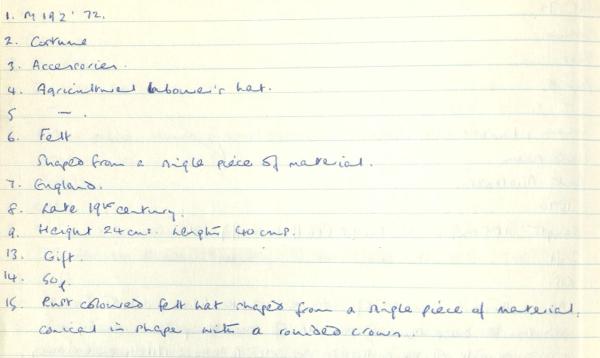 1. M192'72.
2. Costume
3. Accessories.
4. Agricultural labourer's hat.
5 —.
6. Felt
Shaped from a single piece of material.
7. England.
8. Late 19th century.
9. Height 24cms. Length 40cms.
13. Gift.
14. 50p.
15. Rust coloured felt hat shaped from a single piece of material,
conical in shape, with a rounded crown.